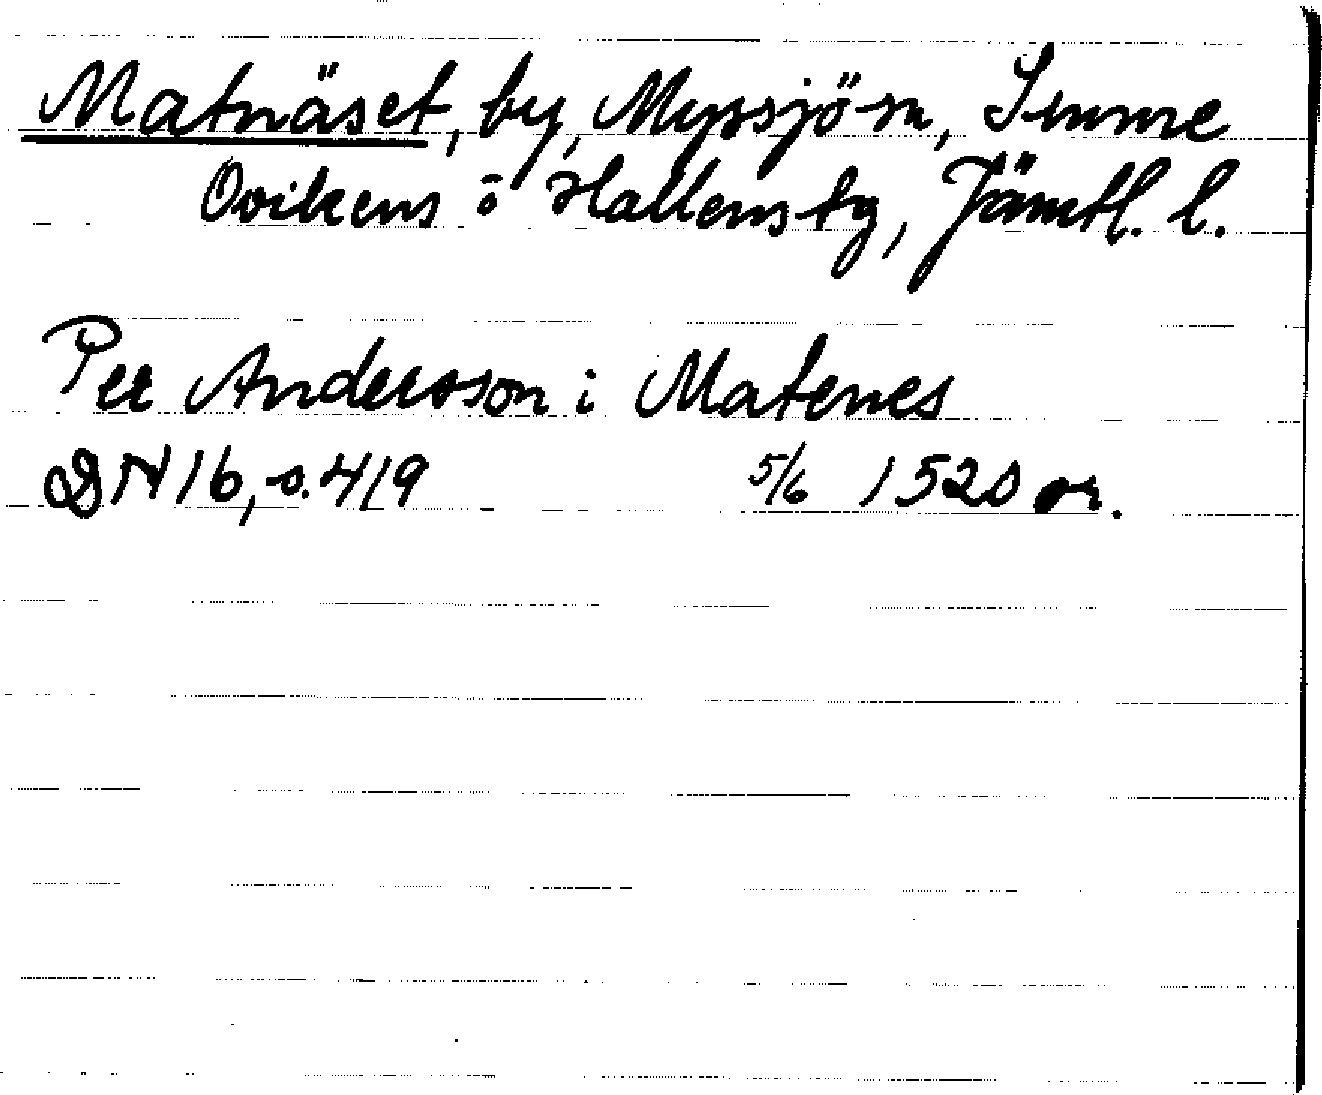 Matnäset, by, Myssjö sn, Sunne
Ovikens o Hallens tg, Jämtl. l.
Per Andersson i Matenes
DN 16, s. 419 5/6 1520 or.